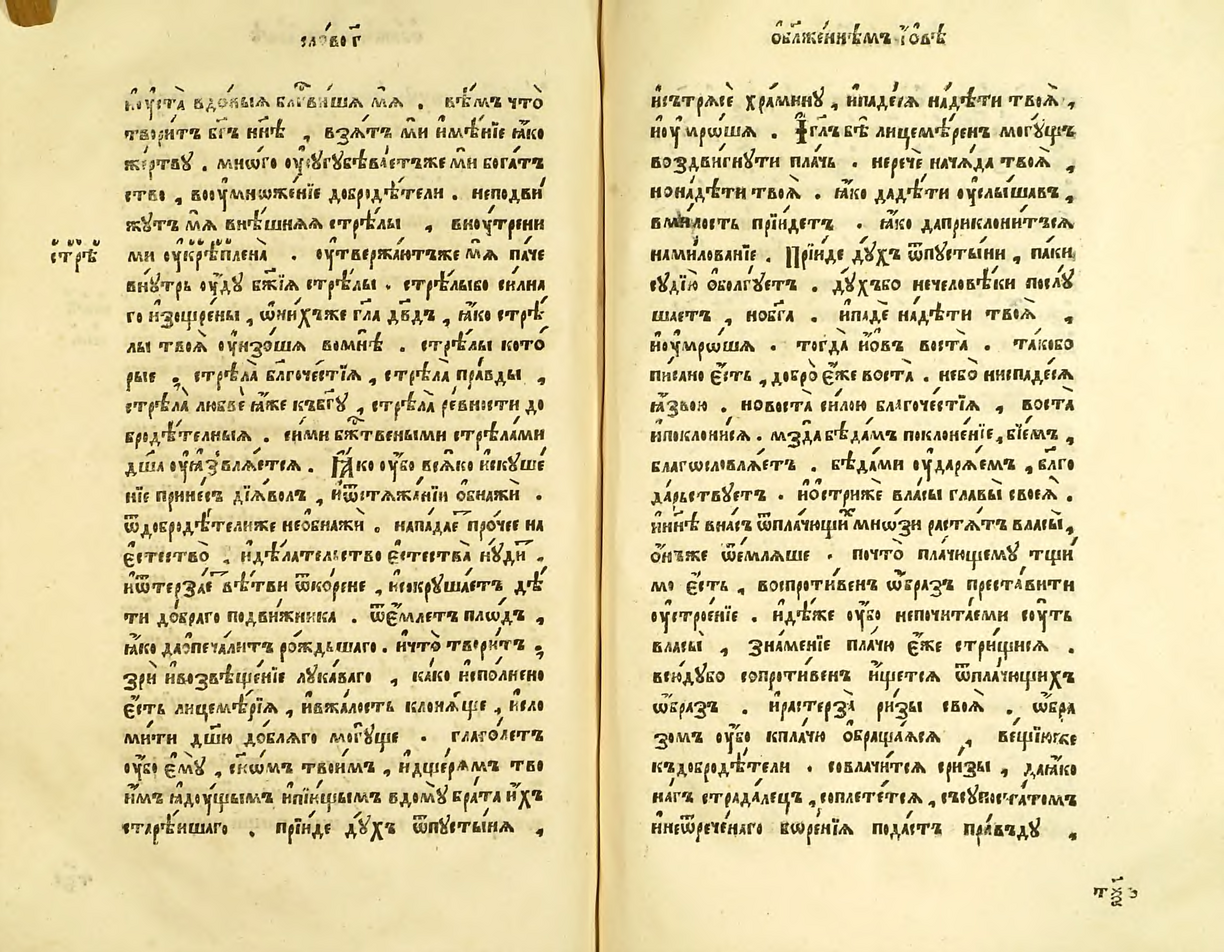 сло́во г҃
и҆оу҆ста̀ вдовы́ѧ блг҃ви́шѧ мѧ̀ . вѣ́мъ что̀
твори́тъ бг҃ъ нн҃ѣ , взѧ́тъ мѝ и҆мѣ́нїе ꙗ҆́ко
же́ртву . мно́го оу҆сугубѣва́етъже мѝ бога́т
ство , воо҆умноже́нїе добродѣ́тели . неподви́
жутъ мѧ̀ внѣ́шнѧѧ стрѣ́лы , вноу́трени
ми оу҆крѣплена̀ . оу҆твержа́ютъже мѧ̀ па́че
внꙋ́трь оу҆́дꙋ бж҃їѧ стрѣ́лы . стрѣ́лыбо си́лна
го и҆зощре́ны , ѡ҆ни́хъже гл҃а дв҃дъ , ꙗ҆́ко стрѣ́
лы твоѧ̀ оу҆нзо́шѧ вомнѣ̀ . стрѣ́лы кото́
рые , стрѣла̀ блг҃оче́стїѧ , стрѣла̀ пра́вды ,
стрѣла̀ любвѐ ꙗ҆́же къбг҃ꙋ , стрѣла̀ ре́вности до
бродѣ́телныѧ . си́ми бж҃твеными стрѣ́лами
дш҃а оу҆ꙗ҆звлѧ́етсѧ . Ꙗ҆́ко оу҆́бо всѧ́ко и҆скуше́
нїе принесъ дїѧ́волъ , и҆ѿстѧжа́нїи ѻ҆бнажи́ .
ѿдобродѣ́телиже неѻ҆бнажи́ . напада́е про́чее на
є҆стество̀ , и҆дѣла́телство є҆стества̀ нꙋ́ди ,
и҆ѿтерза́е вѣ́тви ѿко́рене , и҆сокруша́етъ дѣ́
ти до́браго подви́жника . ѿе́млетъ пло́дъ ,
ꙗ҆́ко даѡ҆печа́литъ ро́ждьшаго . и҆что̀ твори́тъ ,
зрѝ и҆возвѣще́нїе лука́ваго , ка́ко и҆спо́лнено
є҆́сть лицемѣ́рїѧ , и҆вжа́лость клонѧ́ще , и҆сло
ми́ти дш҃ю до́блѧго могу́ще . глаго́летъ
оу҆́бо є҆мꙋ̀ , сн҃омъ твои́мъ , и҆дще́рѧмъ тво
и҆́мъ ꙗ҆дꙋ́щымъ и҆пїю́щымъ вдомꙋ̀ бра́та и҆́хъ
старѣ́ишаго . прїи́де дꙋ́хъ ѿпусты́нѧ ,
стрѣ́
ѻ҆бл҃же́ннѣмъ і҆́ѡвѣ
и҆сътрѧсѐ хра́минꙋ , и҆паде́сѧ надѣ́ти твоѧ̀ ,
и҆оу҆мро́шѧ . І҆ гл҃ъ бѣ̀ лицемѣ́ренъ могу́щъ
воздви́гнути пла́чь . нерече́ начѧ́да твоѧ̀ ,
нонадѣ́ти твоѧ̀ . ꙗ҆́ко дадѣ́ти оу҆слы́шавъ ,
вми́лость прїи́детъ . ꙗ҆́ко даприклони́тъсѧ
намилова́нїе . Прїи́де дꙋ́хъ ѿпусты́ни , па́ки
судїю̀ ѻ҆болгу́етъ . дꙋ́хъбо нечеловѣ́ки послꙋ́
шаетъ , нобг҃а . и҆падѐ надѣ́ти твоѧ̀ ,
и҆оу҆мро́шѧ . тогда̀ і҆́ѡвъ воста̀ . та́кобо
писано є҆́сть , добро̀ є҆́же воста̀ . небо ниспаде́сѧ
ꙗ҆́звою . новоста̀ си́лою благоче́стїѧ , воста̀
и҆поклони́сѧ . мзда̀бѣда́мъ поклоне́нїе , бїе́мъ ,
благословлѧ́етъ . бѣда́ми оу҆дарѧ́емъ , блг҃о
да́рьствуетъ . и҆ѡ҆стри́же власы̀ главы̀ своеѧ̀ .
и҆нн҃ѣ вна́съ ѿпла́чющи мно́зи растѧ́тъ власы̀ ,
ѻ҆́нъже ѿе́млѧше . почто̀ пла́чющему тщи́
мо є҆́сть , воспроти́венъ ѡ҆́бразъ преста́вити
оу҆строе́нїе . и҆дѣ́же оу҆́бо непочита́еми сꙋ́ть
власы̀ , зна́менїе пла́чю є҆́же стри́щисѧ .
всю́дубо сопроти́венъ и҆́щетсѧ ѿпла́чющихъ
ѡ҆́бразъ . и҆растерза̀ ри́зы своѧ̀ . ѡ҆́бра
зомъ оу҆́бо кпла́чю ѻ҆браща́ѧсѧ , ве́щїюже
къдобродѣ́тели . совлачи́тсѧ сри́зы , даꙗ҆́ко
на́гъ страда́лецъ , соплете́тсѧ , съсупоста́томъ
и҆неѿрече́наго боре́нїѧ пода́стъ пра́вьдꙋ ,